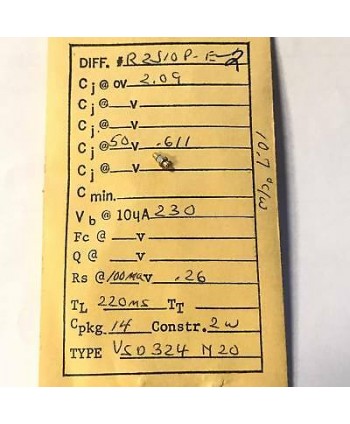 DIFF. #R2510P-E-2
Cj @ 0V 2.09
Cj @ V
Cj @ V
Cj @ 50V .611
Cj @ V
C min.
Vb @ 10μA 230
Fc @ V
Q @ V
Rs @ 100MAV .26
TL 220ms TT
Cpkg. 14 Constr. 2W
TYPE VSD324 N20
10.7°C/W